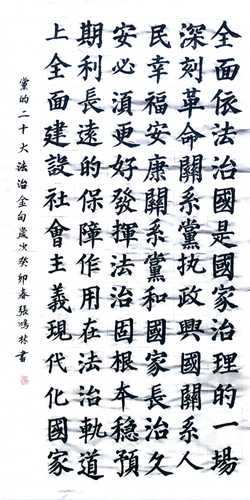 全面依法治國是國家治理的一場
深刻革命關系黨執政興國關系人
民幸福安康關系黨和國家長治久
安必須更好發揮法治固根本穩預
期利長遠的保障作用在法治軌道
上全面建設社會主義現代化國家
黨的二十大法治金句歲次癸卯春張鴻林書